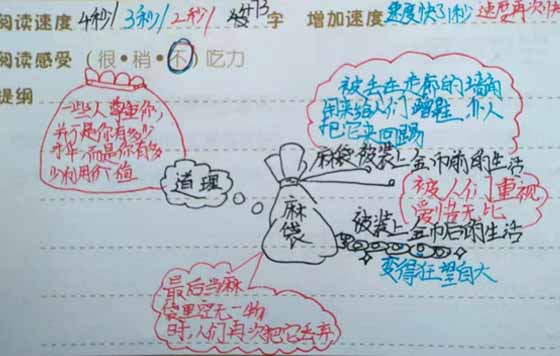 阅读速度 4秒/3秒/2秒/ 73字 增加速度 速度快了1秒 速度再次快
阅读感受（很·稍·不）吃力
提纲
一些人尊重你,
并不是你有多少
才华,而是你有多
少利用价值
道理
麻袋
被丢在走廊的墙角
用来给人们蹭鞋
把它来回踢
麻袋被装上金币前的生活
被人们重视
爱惜无比
被装上金币后的生活
变得狂望自大
最后当麻
袋里空无一物
时,人们再次把它丢弃